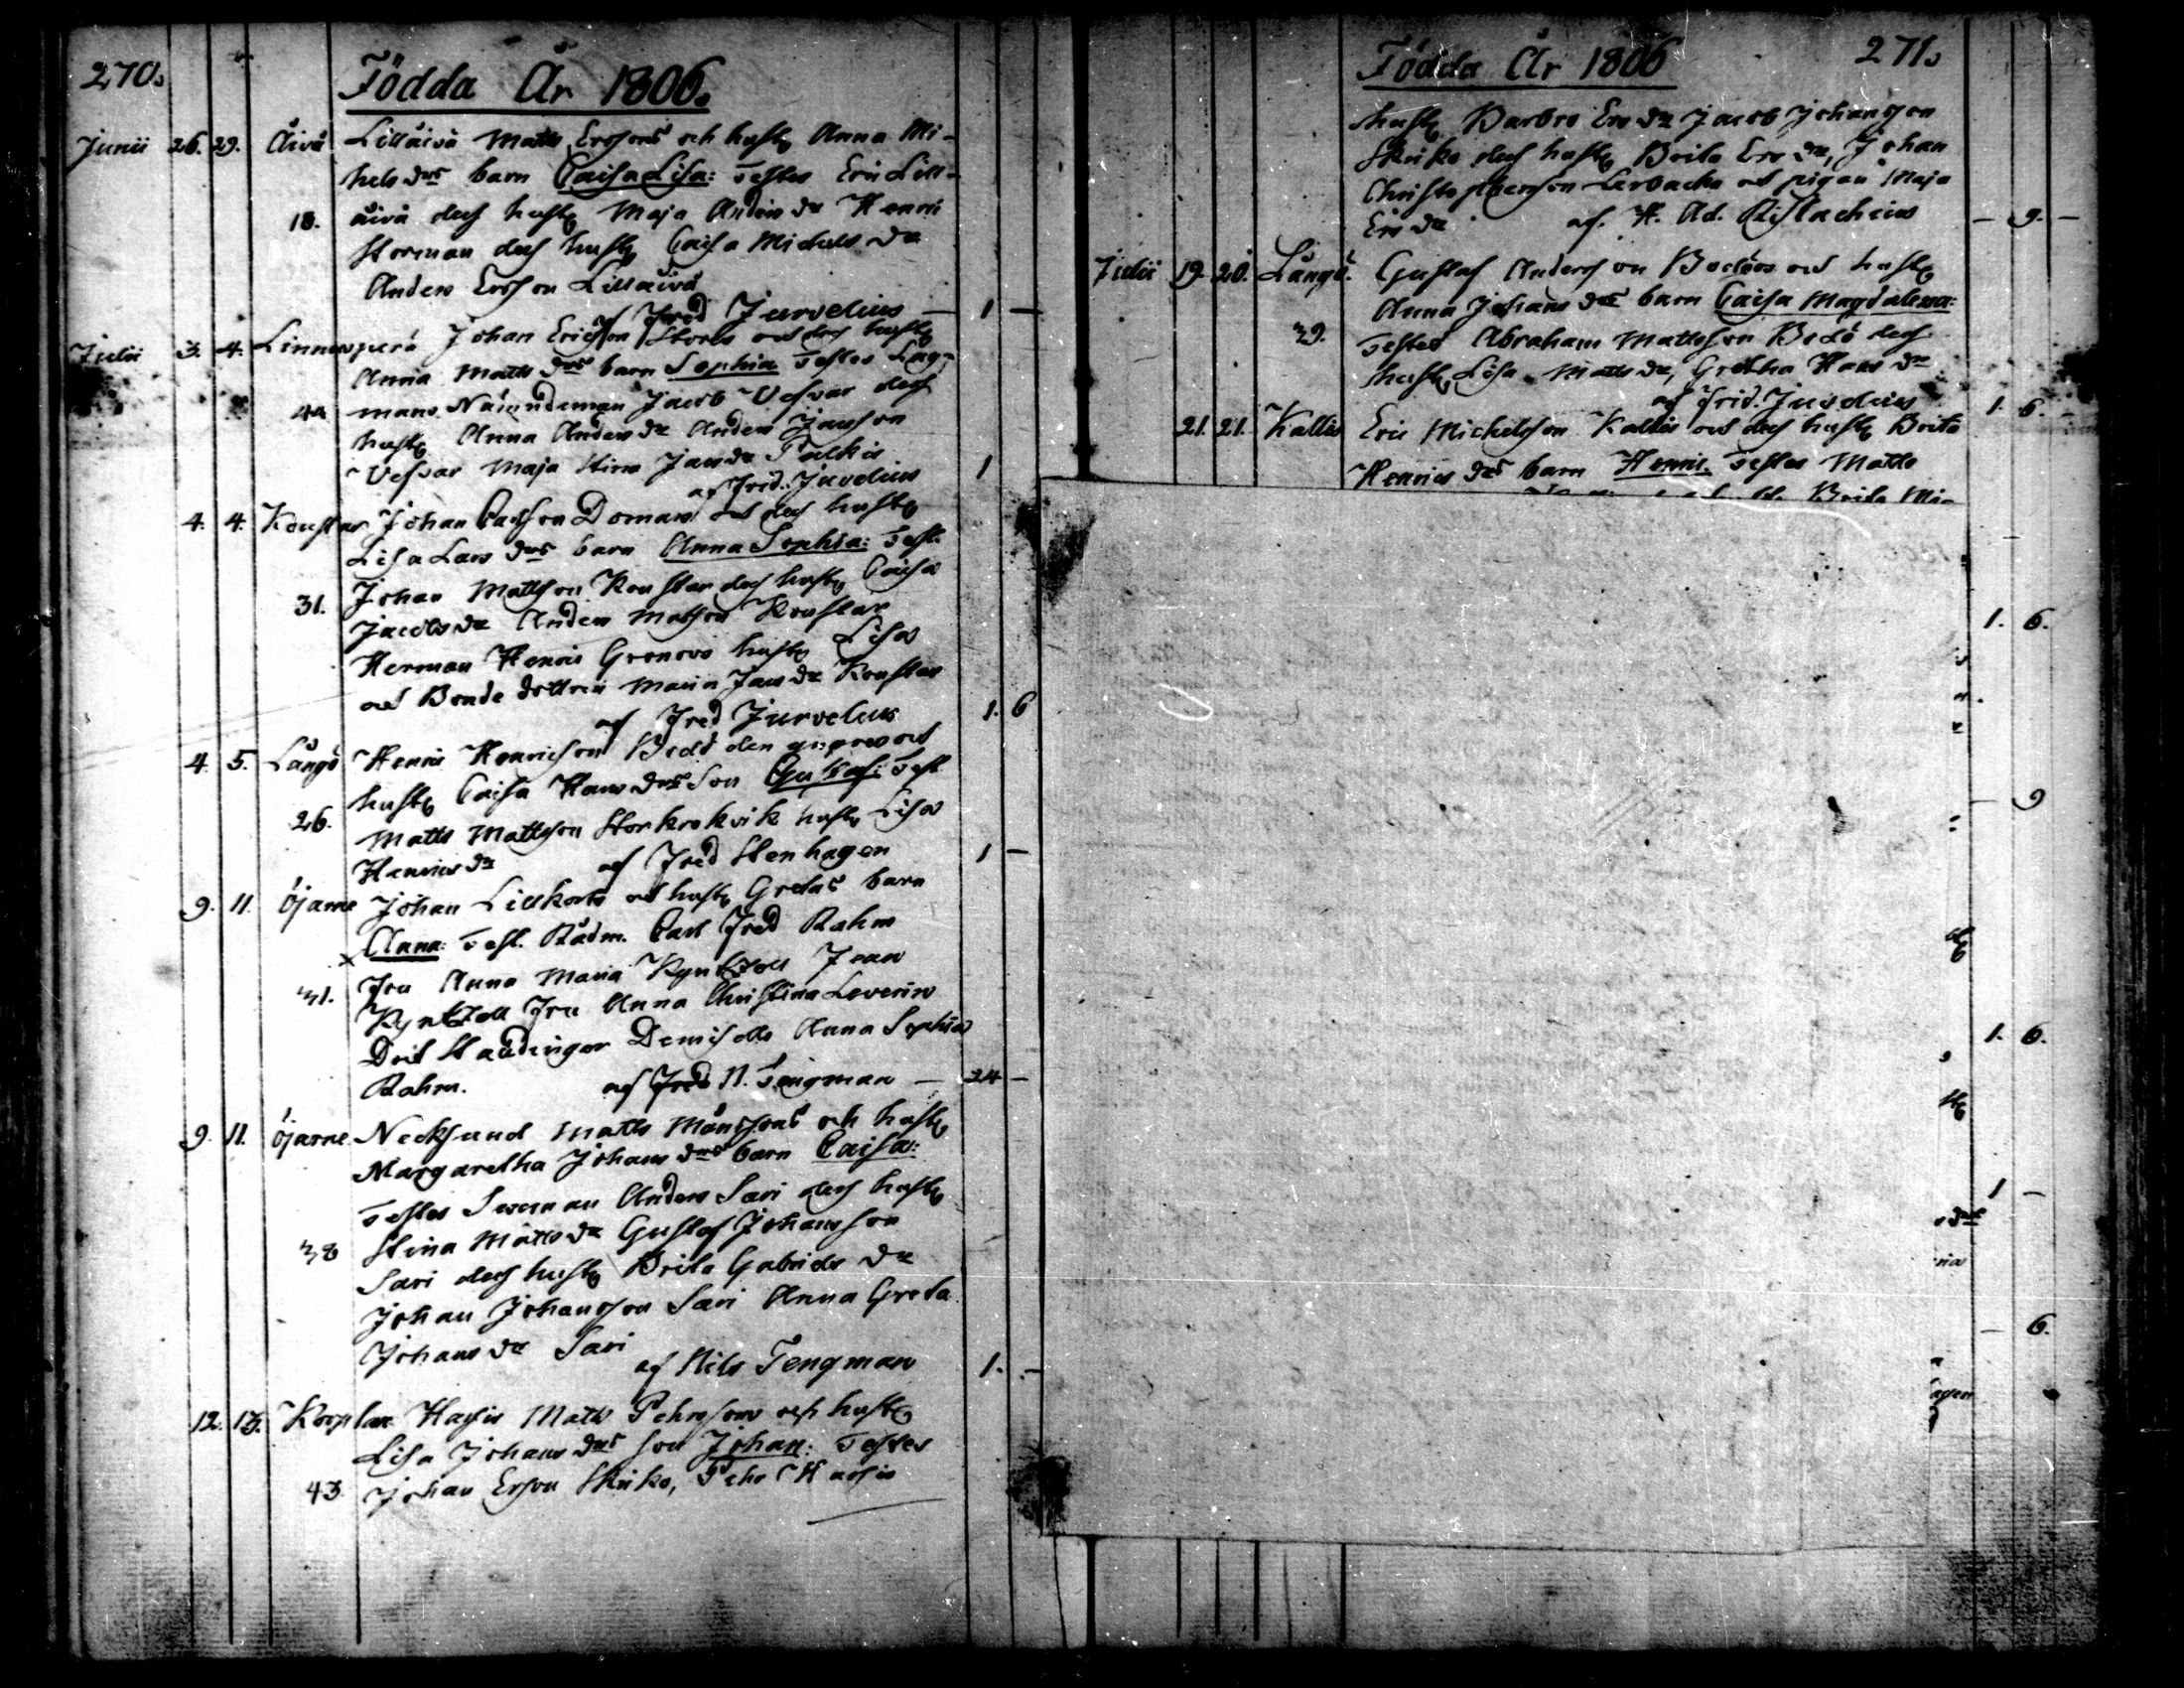 270.
Födda År 1806.
Junii 26. 29. Åivå Lillåivå Matts Ersons och hust Anna Mi-
hels drs barn Caisa Lisa: Testes Eric Lill-
18. åivå dess hust Maja Anders dr Henric
Storman dess hust Caisa Michels dr
Anders Erson Lillåivå
af Fred Jurvelius — 1 —
Julii 3. 4. Linnusperä Johan Ericson Storls och dess hust
Anna Matts drs barn Sophia Testes Lag-
44 mans Nämndeman Jacob Vesvar dess
hust Anna Anders dr Anders Janson
Vesvar Maja Stina Jans dr Palkis
af Frid. Juvelius 1
4. 4. Koustar Johan Carlson Domars och dess hust
Lisa Lars drs barn Anna Sophia: Test.
31. Johan Mattson Koustar dess hust Caisa
Jacobs dr Anders Matson Koustar
Herman Henric Gronovs hust Lisa
och Bonde dottren Maria Jans dr Koustar
af Fred Jurvelius 1. 6
4. 5. Långö Henric Henricson Bodö den yngres och
hust Caisa Hans drs Son Gustaf: Test
26. Matts Mattsson Storkrokvik hust Lisa
Henrics dr af Fred Stenhagen 1 —
9. 11. Öjarne Johan Lillkorts och hust Gretas barn
x Anna: Test. Rådm. Carl Fred Rahm
31. Fru Anna Maria Kyntzell Jean
Kyntzell Fru Anna Christina Leverin
Doct Staudinger Demiselle Anna Sophia
Rahm. af Fred N. Tengman — 24 —
9. 11. Öjarne Necksund Matts Månssons och hust
Margaretha Johans drs barn Caisa:
Testes Sexman Anders Sari dess hust
38 Stina Matts dr Gustaf Johansson
Sari dess hust Brita Gabriels dr
Johan Johansson Sari Anna Greta
Johans dr Sari
af Nils Tengman 1. —
12. 13. Korplax Hasis Matts Pehrssons och hust
Lisa Johans drs son Johan: Testes
43. Johan Erson Skriko, Pehr Hasis
Födda År 1806 271.
hust Barbro Ers dr Jacob Johansson
Skriko dess hust Brita Ers dr, Johan
Christophersson Lerbacka och pigan Maja
Ers dr af. H. Ad. — 9. —
Julii 19. 20. Långö. Gustaf Anderson Bodöos och hust
Anna Johans drs barn Caisa Magdalena:
39. Testes Abraham Mattsson Bodö dess
hust Lisa Matts dr, Gretha Hans dr
af Frid. Juvelius 1. 6.
21. 21. Kallis Eric Michelsson Kallis och dess hust Brita
Henrics drs barn Henric. Testes Matts
Brita Mi-
1. 6.
— 9
1. 6.
1 —
— 6.